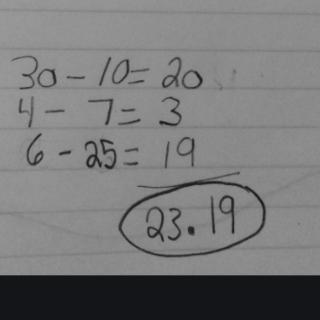 30 - 10 = 20
4 - 7 = 3
6 - 25 = 19
23.19